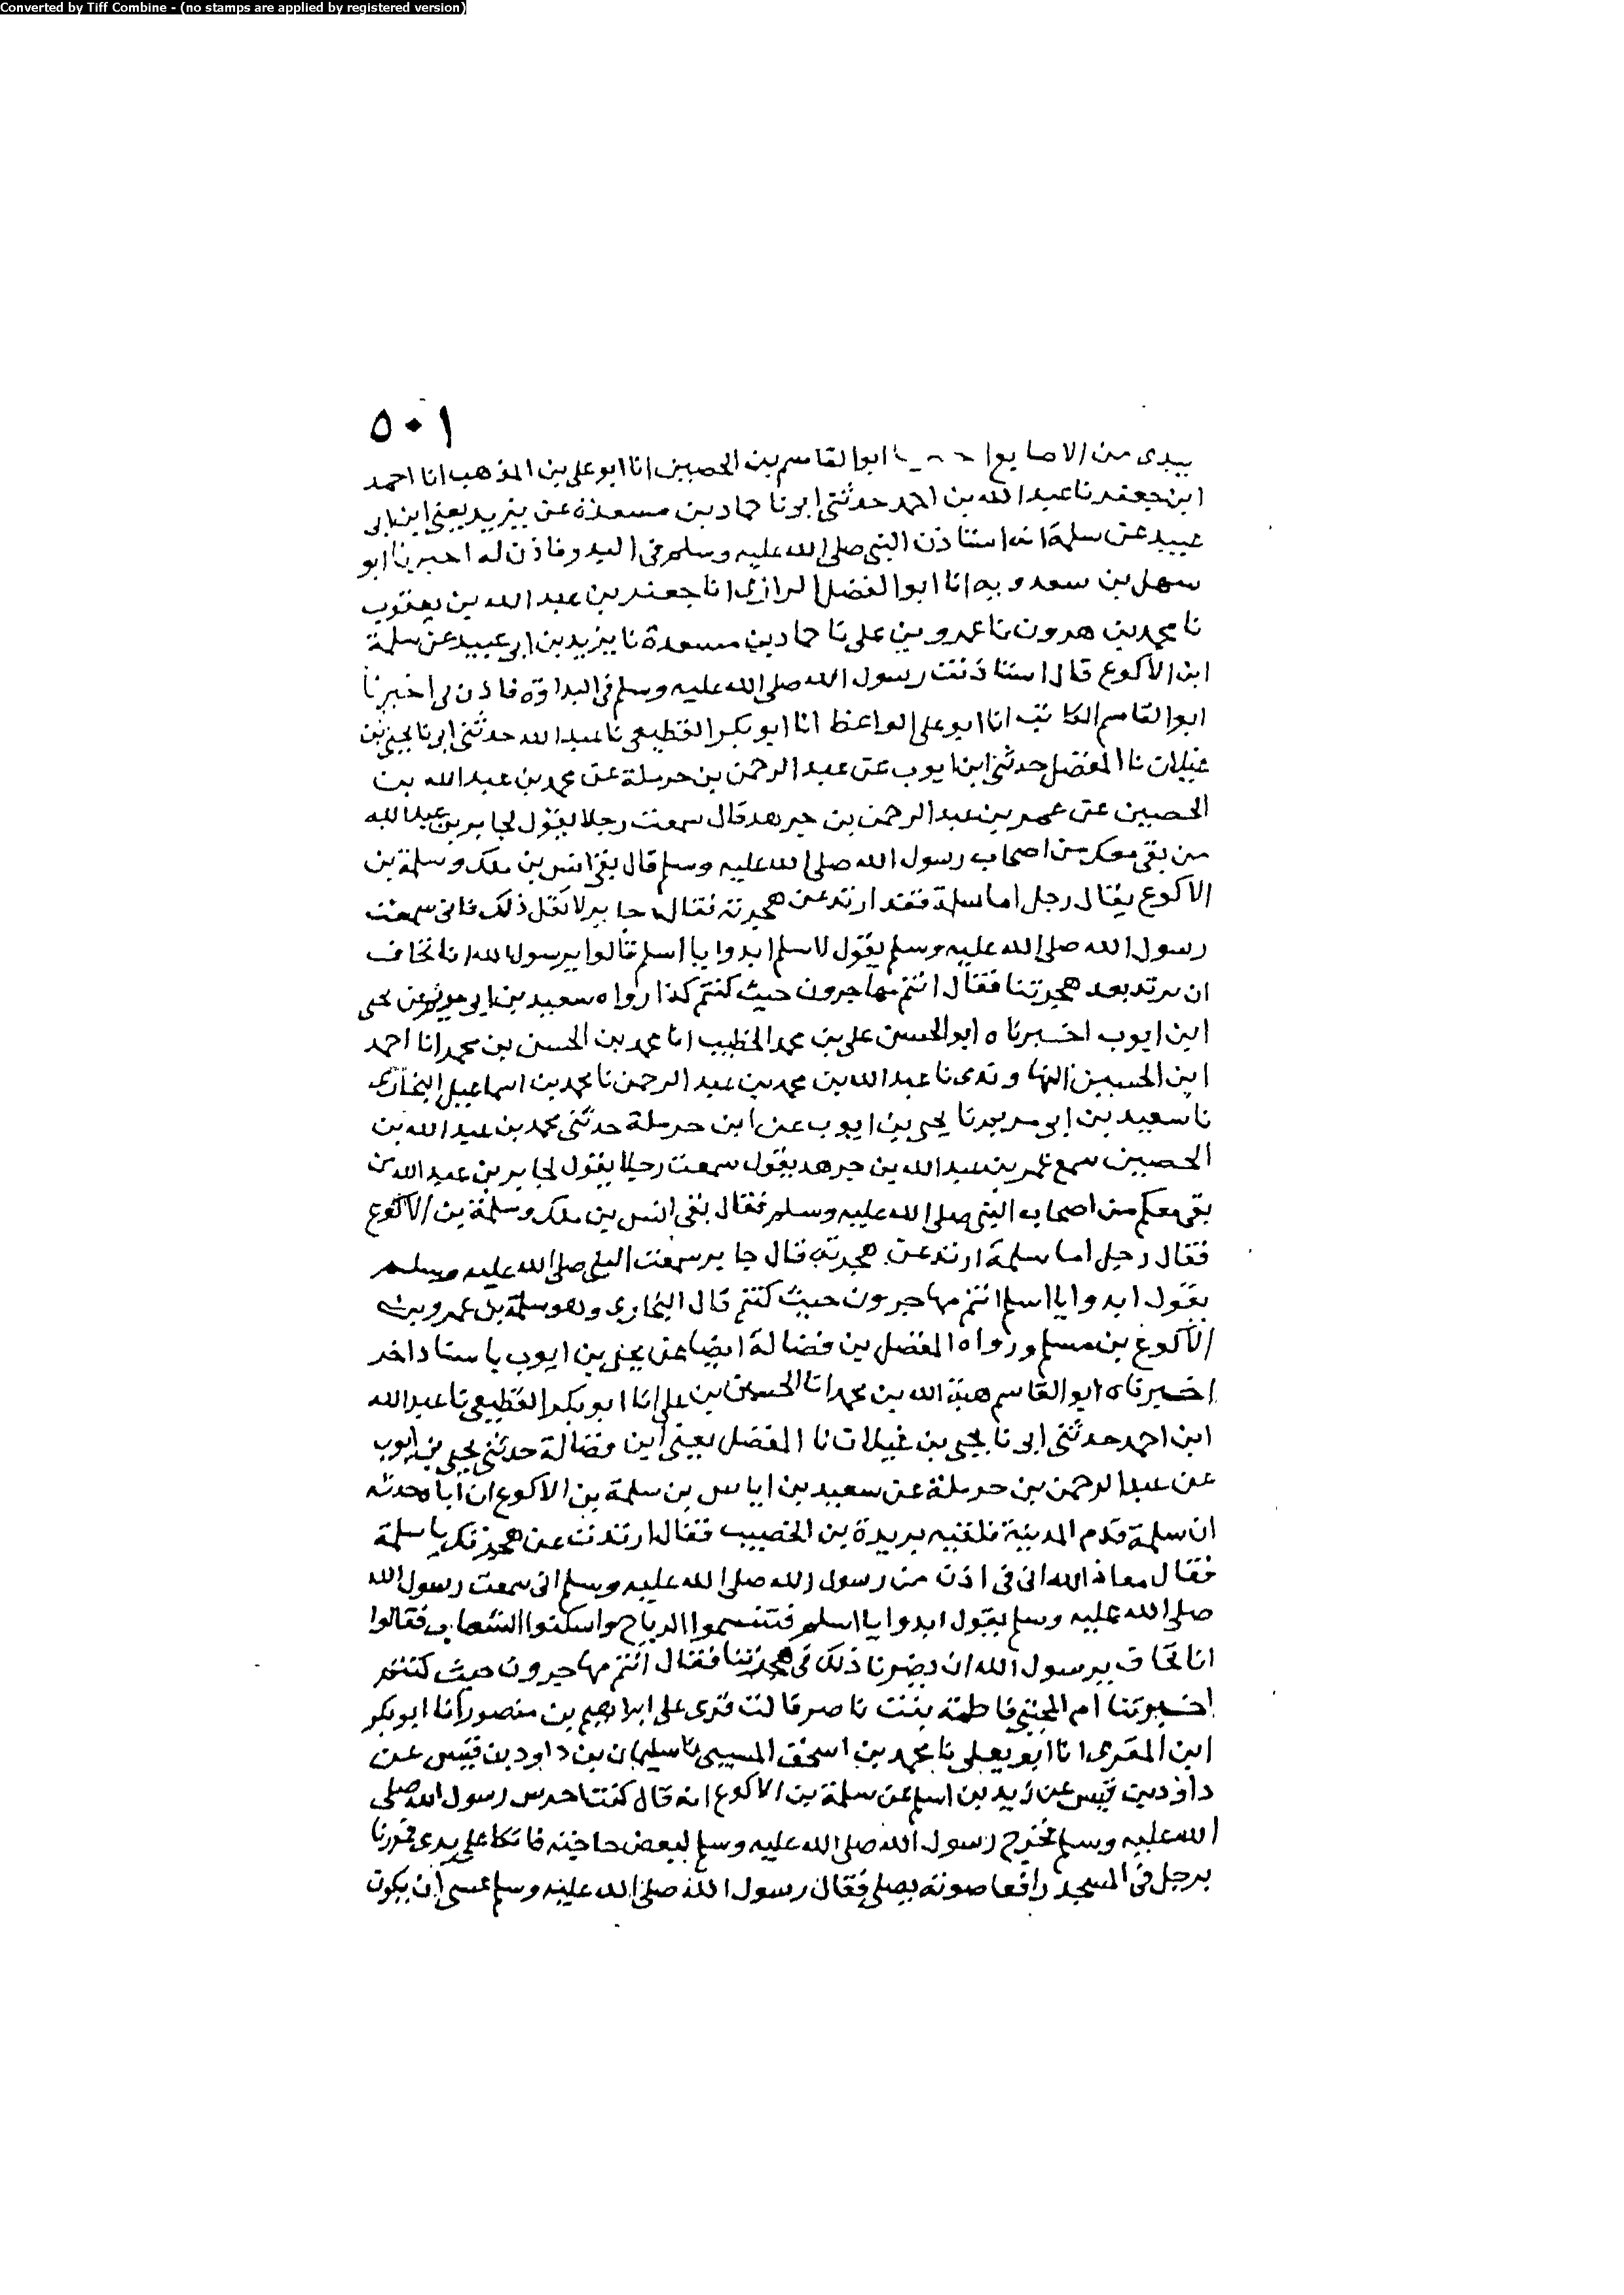 Converted by Tiff Combine - (no stamps are applied by registered version)
٥٠١
بيدى من الاصابع ابوالقاسم بن الحصين انا ابو على بن المذهب انا احمد
ابن جعفر نا عبد الله بن احمد حدثنى ابى نا حماد بن مسعدة عن يزيد يعنى ابن ابى
عبيد عن سلمة انه استاذن النبى صلى الله عليه وسلم فى البدو فاذن له اخبرنا ابو
سهل بن سعدويه انا ابو الفضل الرازى انا جعفر بن عبد الله بن يعقوب
نا محمد بن هرون نا عمرو بن على نا حماد بن مسعدة نا يزيد بن ابى عبيد عن سلمة
ابن الاكوع قال استاذنت رسول الله صلى الله عليه وسلم فى البداوة فاذن لى اخبرنا
ابوالقاسم الكاتب انا ابو على الواعظ انا ابو بكر القطيعى نا عبد الله حدثنى ابى نا يحيى بن
غيلان نا المفضل حدثنى ابن ايوب عن عبد الرحمن بن حرملة عن محمد بن عبد الله بن
الحصين عن عمر بن عبد الرحمن بن جرهد قال سمعت رجلا يقول لجابر بن عبد الله
من بقى معكم من اصحاب رسول الله صلى الله عليه وسلم قال بقى انس بن ملك وسلمة بن
الاكوع فقال رجل اما سلمة فقد ارتد عن هجرته فقال جابر لا تقل ذلك فانى سمعت
رسول الله صلى الله عليه وسلم يقول لاسلم ابدوا يا اسلم قالوا يرسول الله انا نخاف
ان نرتد بعد هجرتنا فقال انتم مهاجرون حيث كنتم كذا رواه سعيد بن ابى مريم عن يحيى
ابن ايوب اخبرناه ابو الحسن على بن محمد الخطيب انا محمد بن الحسن بن محمد انا احمد
ابن الحسين النهاوندى نا عبد الله بن محمد بن عبد الرحمن نا محمد بن اسماعيل البخارى
نا سعيد بن ابى مريم نا يحيى بن ايوب عن ابن حرملة حدثنى محمد بن عبد الله بن
الحصين سمع عمر بن عبد الله بن جرهد يقول سمعت رجلا يقول لجابر بن عبد الله من
بقى معكم من اصحاب النبى صلى الله عليه وسلم فقال بقى انس بن ملك وسلمة بن الاكوع
فقال رجل اما سلمة ارتد عن هجرته قال جابر سمعت النبى صلى الله عليه وسلم
يقول ابدوا يا اسلم انتم مهاجرون حيث كنتم قال البخارى وهو سلمة بن عمرو بن
الاكوع بن مسلم ورواه المفضل بن فضالة ايضا عن يحيى بن ايوب باسناد اخر
اخبرناه ابو القاسم هبة الله بن محمد انا الحسن بن على انا ابو بكر القطيعى نا عبد الله
ابن احمد حدثنى ابى نا يحيى بن غيلان نا المفضل يعنى ابن فضالة حدثنى يحيى بن ايوب
عن عبد الرحمن بن حرملة عن سعيد بن اياس بن سلمة بن الاكوع ان اباه حدثه
ان سلمة قدم المدينة فلقيه بريدة بن الخصيب فقال ارتددت عن هجرتك يا سلمة
فقال معاذ الله انى فى اذن من رسول الله صلى الله عليه وسلم انى سمعت رسول الله
صلى الله عليه وسلم يقول ابدوا يا اسلم فتنسموا الرياح واسكنوا الشعاب فقالوا
انا نخاف يرسول الله ان يضرنا ذلك فى هجرتنا فقال انتم مهاجرون حيث كنتم
اخبرتنا ام المجتبى فاطمة بنت ناصر قالت قرى على ابراهيم بن منصور انا ابو بكر
ابن المقرى انا ابو يعلى نا محمد بن اسحق المسيبى نا سليمان بن داود بن قيس عن
داود بن قيس عن زيد بن اسلم عن سلمة بن الاكوع انه قال كنت احرس رسول الله صلى
الله عليه وسلم فخرج رسول الله صلى الله عليه وسلم لبعض حاجته فاتكا على يدى فمررنا
برجل فى المسجد رافعا صوته يصلى فقال رسول الله صلى الله عليه وسلم عسى ان يكون